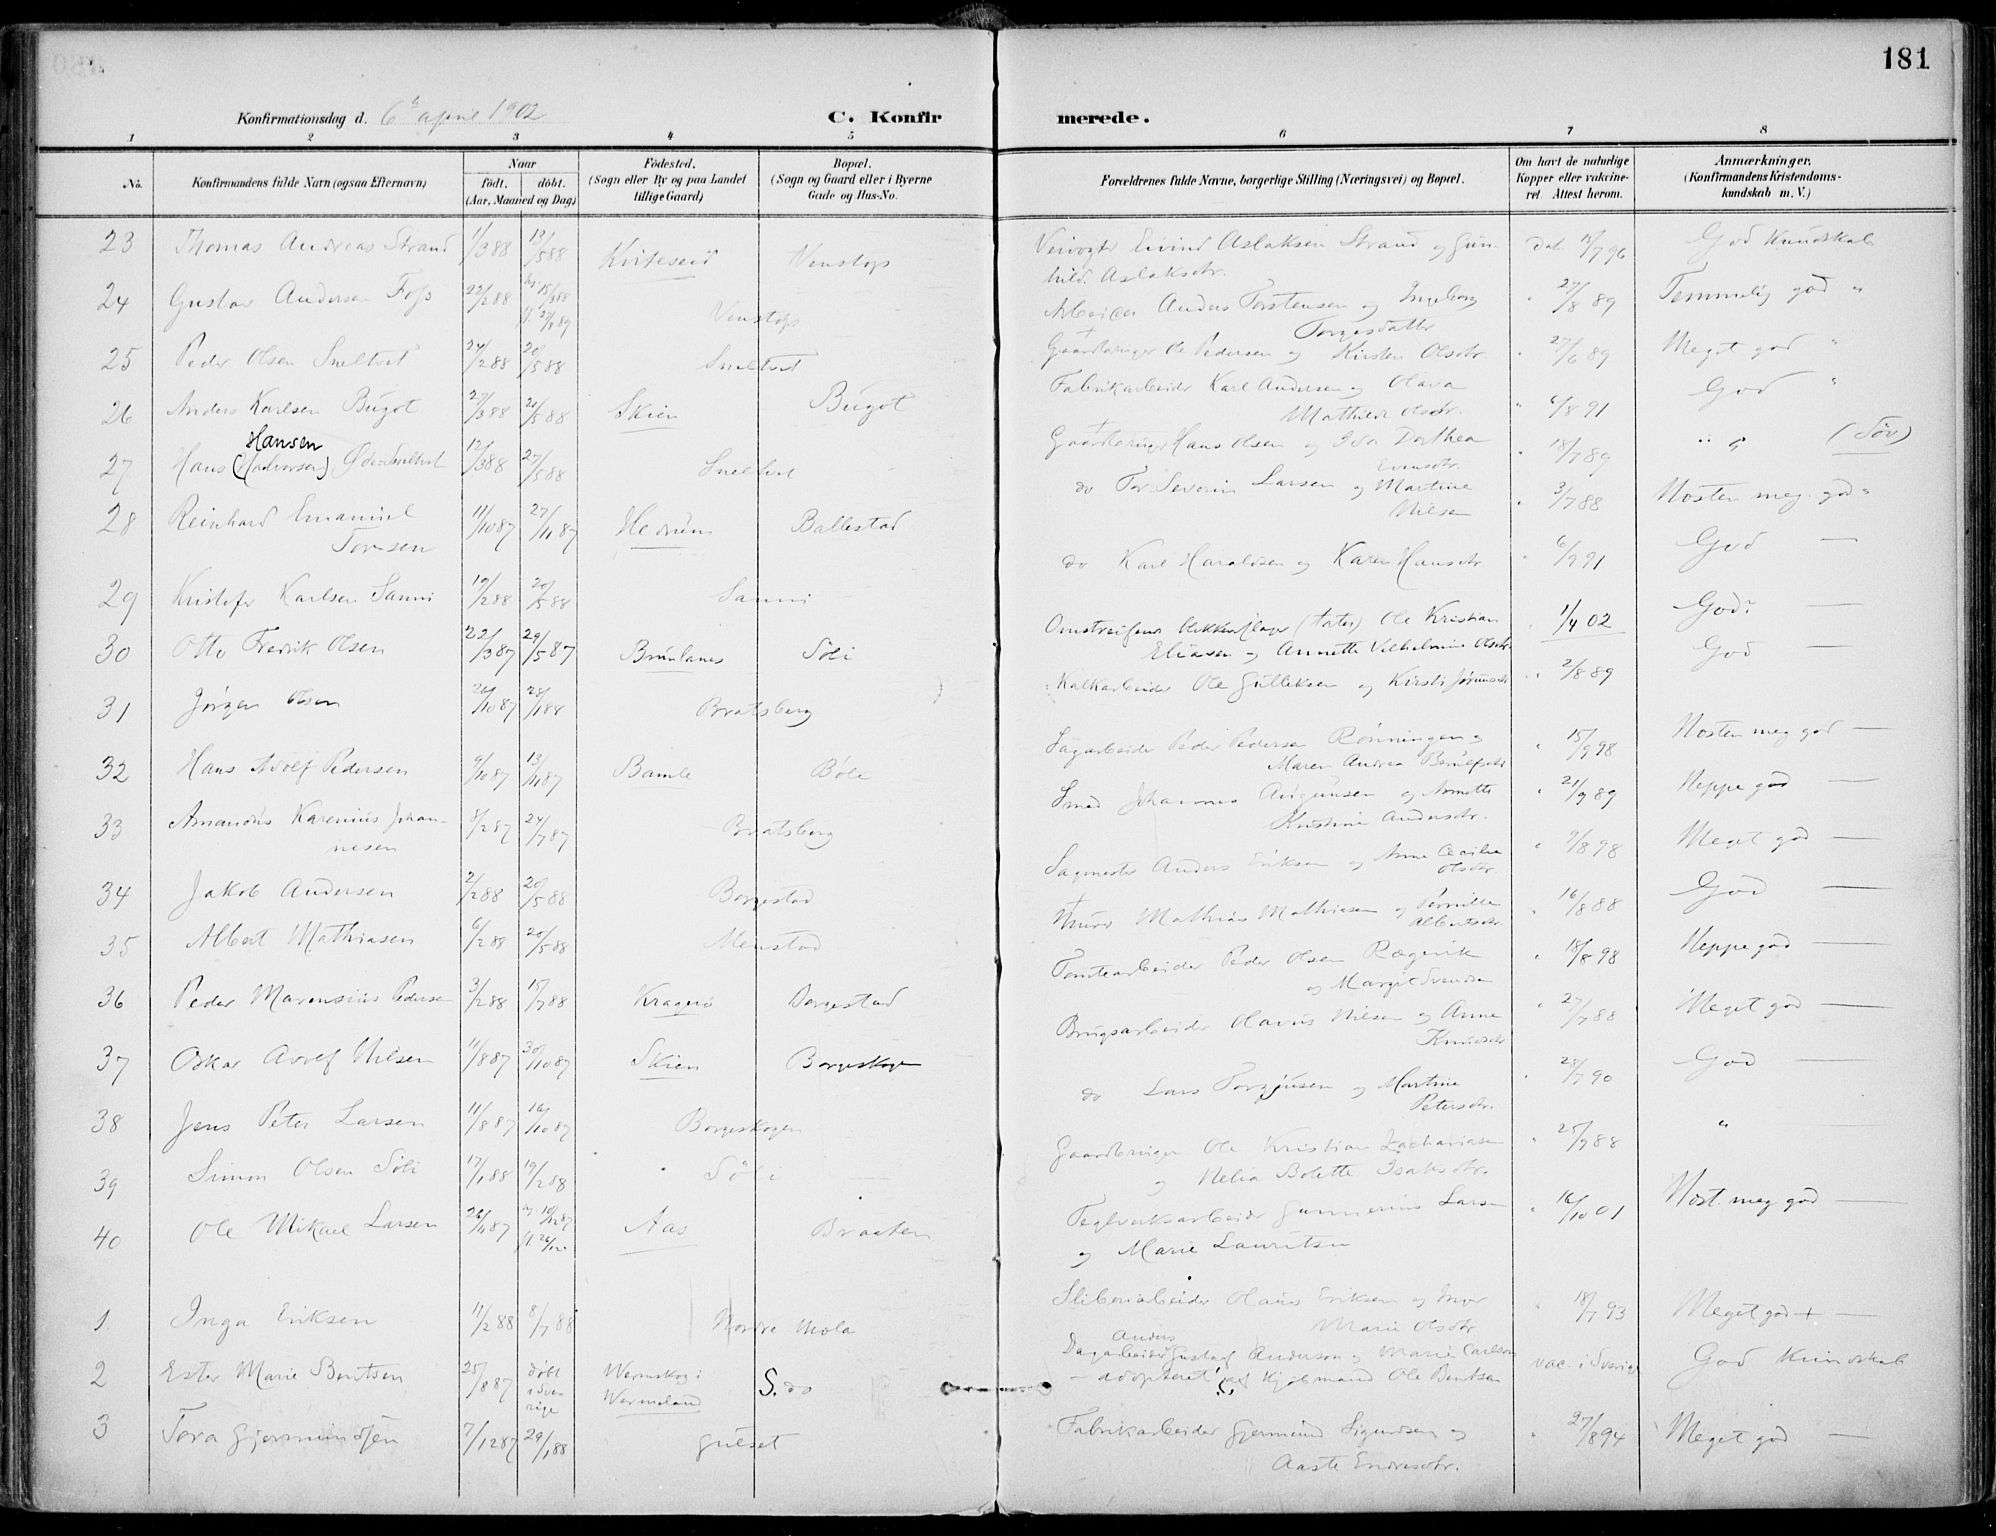 181
Konfirmationsdag d. 6te april 1902
C. Konfirmerede.
1 2 3 4 5 6 7 8
No.
Konfirmandens fulde Navn (ogsaa Efternavn)
Naar
født. døbt.
(Aar, Maaned og Dag)
Fødested.
(Sogn eller By og paa Landet
tillige Gaard)
Bopæl.
(Sogn og Gaard eller i Byerne
Gade og Hus-No.
Forældrenes fulde Navne, borgerlige Stilling (Næringsvei) og Bopæl.
Om havt de naturlige
Kopper eller vakcine-
ret. Attest herom.
Anmærkninger.
(Konfirmandens Kristendoms-
kundskab m. V.)
23 Thomas Andreas Strand 1/3 88 13/5 88 Kviteseid Venstøp Veivogter Eivind Aslaksen Strand og Gun- Dat 15/7 96 God Kundskab
hild Aslaksdtr.
24 Gustav Andersen Foss 22/2 88 15/3 88 27/8 89 Venstøp Arbeider Anders Torstensen og Ingeborg " 27/8 89 Temmelig god "
Torgesdatter
25 Peder Olsen Sneltvet 24/2 88 20/5 88 Sneltvet Gaardbruger Ole Pedersen og Kirsten Olsdtr. " 27/6 89 Meget god "
26 Anders Karlsen Bugot 27/3 88 20/5 88 Skien Bugot Fabrikarbeider Karl Andersen og Olava God "
Mathilde Olsdtr. " 6/8 91
27 Hans (Halvorsen) Hansen Øde-Sneltvet 12/3 88 27/5 88 Sneltvet Gaardbruger Hans Olsen og Ida Dorthea " 18/7 89 " " (Søv)
Evensdtr.
28 Reinhard Emanuel 11/10 87 27/11 87 Hedrum Ballestad do Tor Severin Larsen og Martine " 3/7 88 Næsten meg. god "
Torsen Nilsen
29 Kristofer Karlsen Sanni 19/2 88 20/5 88 Sanni do Karl Haraldsen og Karen Hansdtr " 6/9 91 God —
30 Otto Fredrik Olsen 22/3 87 29/5 87 Brunlanes Søli Omstreifende Blikkenslager (tater) Ole Kristian " 1/4 02 God —
Eliasen og Annette Vilhelmine Olsdtr
31 Jørgen Olsen 26/10 87 28/1 88 Bratsberg Kalkarbeider Ole Gulleksen og Kirsti Jørunsdtr " 2/8 89 God —
32 Hans Adolf Pedersen 9/10 87 13/11 87 Bamle Bøle Sagarbeider Peder Pedersen Rønningen og " 15/9 98 Næsten meg god —
Maren Andrea
33 Amandus Karenius Johan- 5/2 87 24/7 87 Bratsberg Smed Johannes Augunsen og Annette " 21/9 89 Neppe god
nesen Kristine Andersdtr.
34 Jakob Andersen 2/2 88 20/5 88 Borgestad Sagmester Anders Eriksen og Anne Cecilie " 9/8 98 Meget god —
Olsdtr.
35 Albert Mathiasen 6/2 88 20/5 88 Menstad Murer Mathias Mathiasen og Pernille " 16/8 88 God —
Albertsdtr.
36 Peder Marensius Pedersen 3/2 88 15/7 88 Kragerø Borgestad Tomtearbeider Peder Olsen Rægevik " 18/8 98 Neppe god —
og Margit Svendsen
37 Oskar Adolf Nilsen 11/8 87 30/10 87 Skien Borgeskogen Brugsarbeider Olavus Nilsen og Anne " 27/7 88 Meget god —
Knudsdtr
38 Jens Peter Larsen 11/8 87 16/10 87 Borgeskogen do Lars Torgjusen og Martine " 28/7 90 God —
Petersdtr.
39 Simon Olsen Søli 17/1 88 19/2 88 Søli Gaardbruger Ole Kristian Zachariasen " 25/9 88 " —
og Helia Bolette Isaksdtr.
40 Ole Mikael Larsen 26/11 87 Aas Braaten Teglverksarbeider Gunnerius Larsen " 16/10 01 Næst. meg god —
og Marie Lauritsen
1. Inga Eriksen 11/2 88 8/7 88 Nordre Mæla Sliberiarbeider Olaus Eriksen og Inger " 18/7 93 Meget god + —
Marie Olsdtr
2 Ester Marie Bentsen 25/8 87 døbt Wermskog i S. do Dagarbeider Anders Gustaf Anderson og Marie Carlson vac. i Sverige God Kundskab
i Sve- Wermeland — adopteret af Kjøbmand Ole Bentsen
rige
3 Tora Gjermundsen 7/12 87 29/1 88 Gulset Fabrikarbeider Gjermund Sigurdsen og " 27/8 94 Meget god —
Aaste Endresdtr.